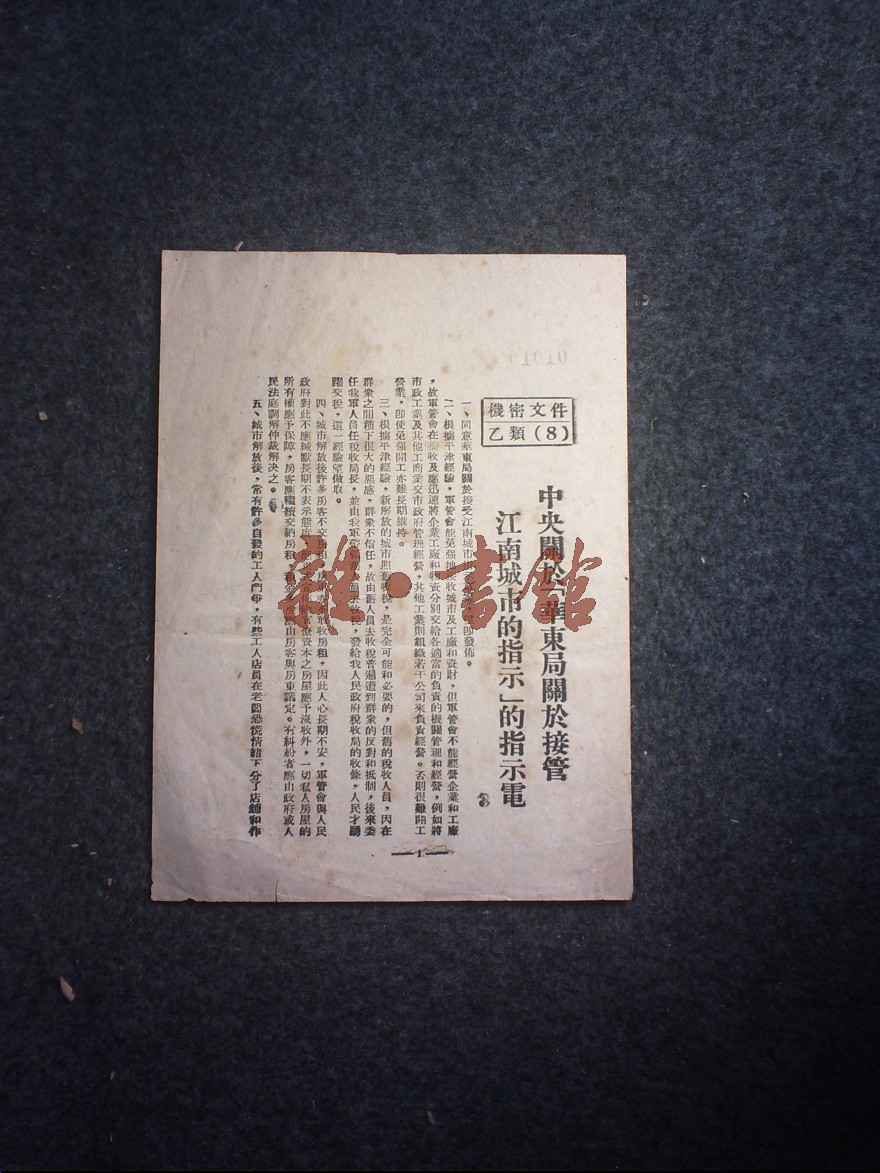 機密文件
乙類(8)
中央關於「華東局關於接管
江南城市的指示」的指示電
一、同意華東局關於接受江南城市 即發佈。
二、根據平津經驗,軍管會能免强地接收城市及工廠和資財,但軍管會不能經營企業和工廠
,故軍管會在接收及應迅速將企業工廠和物資分別交給各適當的負責的機關管理和經營,例如將
市政工業及其他工商業交市政府管理經營,其他工業則組織若干公司來負責經營。否則很難開工
營業,即使免强開工亦難長期維持。
三、根據平津經驗,新解放的城市照舊收稅,是完全可能和必要的,但舊的稅收人員,因在
群衆之間種下很大的惡感,群衆不信任,故由舊人員去收稅普遍遭到群衆的反對和抵制,後來委
任我軍人員任稅收局長,並由我軍 去收稅,發給我人民政府稅收局的收條,人民才踴
躍交稅,這一經驗望做取。
四、城市解放後許多房客不交房租, 收房租,因此人心長期不安,軍管會與人民
政府對此不應緘默長期不表示態度 官僚資本之房屋應予沒收外,一切私人房屋的
所有權應予保障,房客應繼續交納房租, 由房客與房東議定。有糾紛者應由政府或人
民法庭調解仲裁解决之。
五、城市解放後,常有許多自發的工人鬥爭,有些工人店員在老闆恐慌情緒下分了店鋪和作
—1—
雜·書館
01010